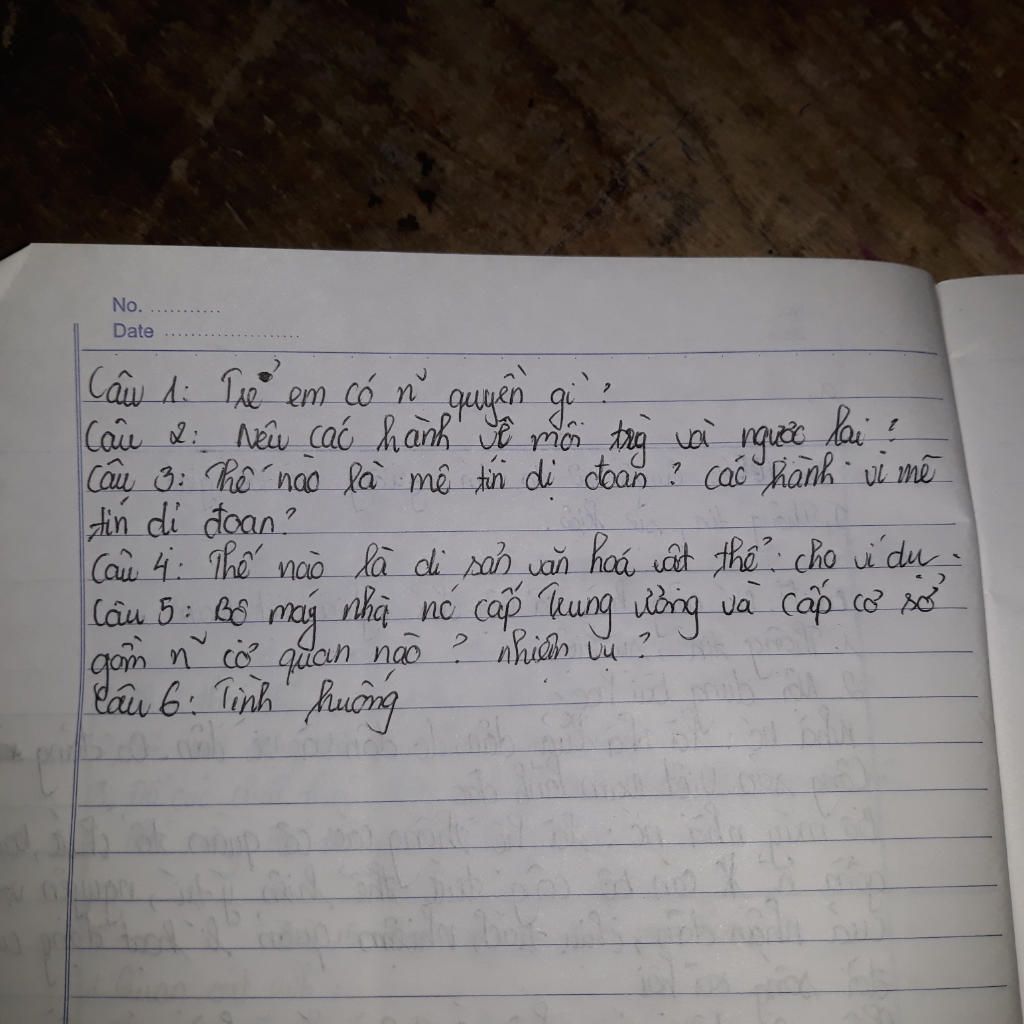 No. ...........
Date ....................
Câu 1: Trẻ em có n~ quyền gì?
Câu 2: Nêu các hành về môi trg và ngược lai?
Câu 3: Thế nào là mê tín dị đoan? các hành vi mê
tín dị đoan?
Câu 4: Thế nào là di sản văn hoá vât thể: cho ví du.
Câu 5: Bô máy nhà nc cấp Trung ương và cấp cơ sở
gồm n~ cơ quan nào? nhiêm vu?
Câu 6: Tình huống